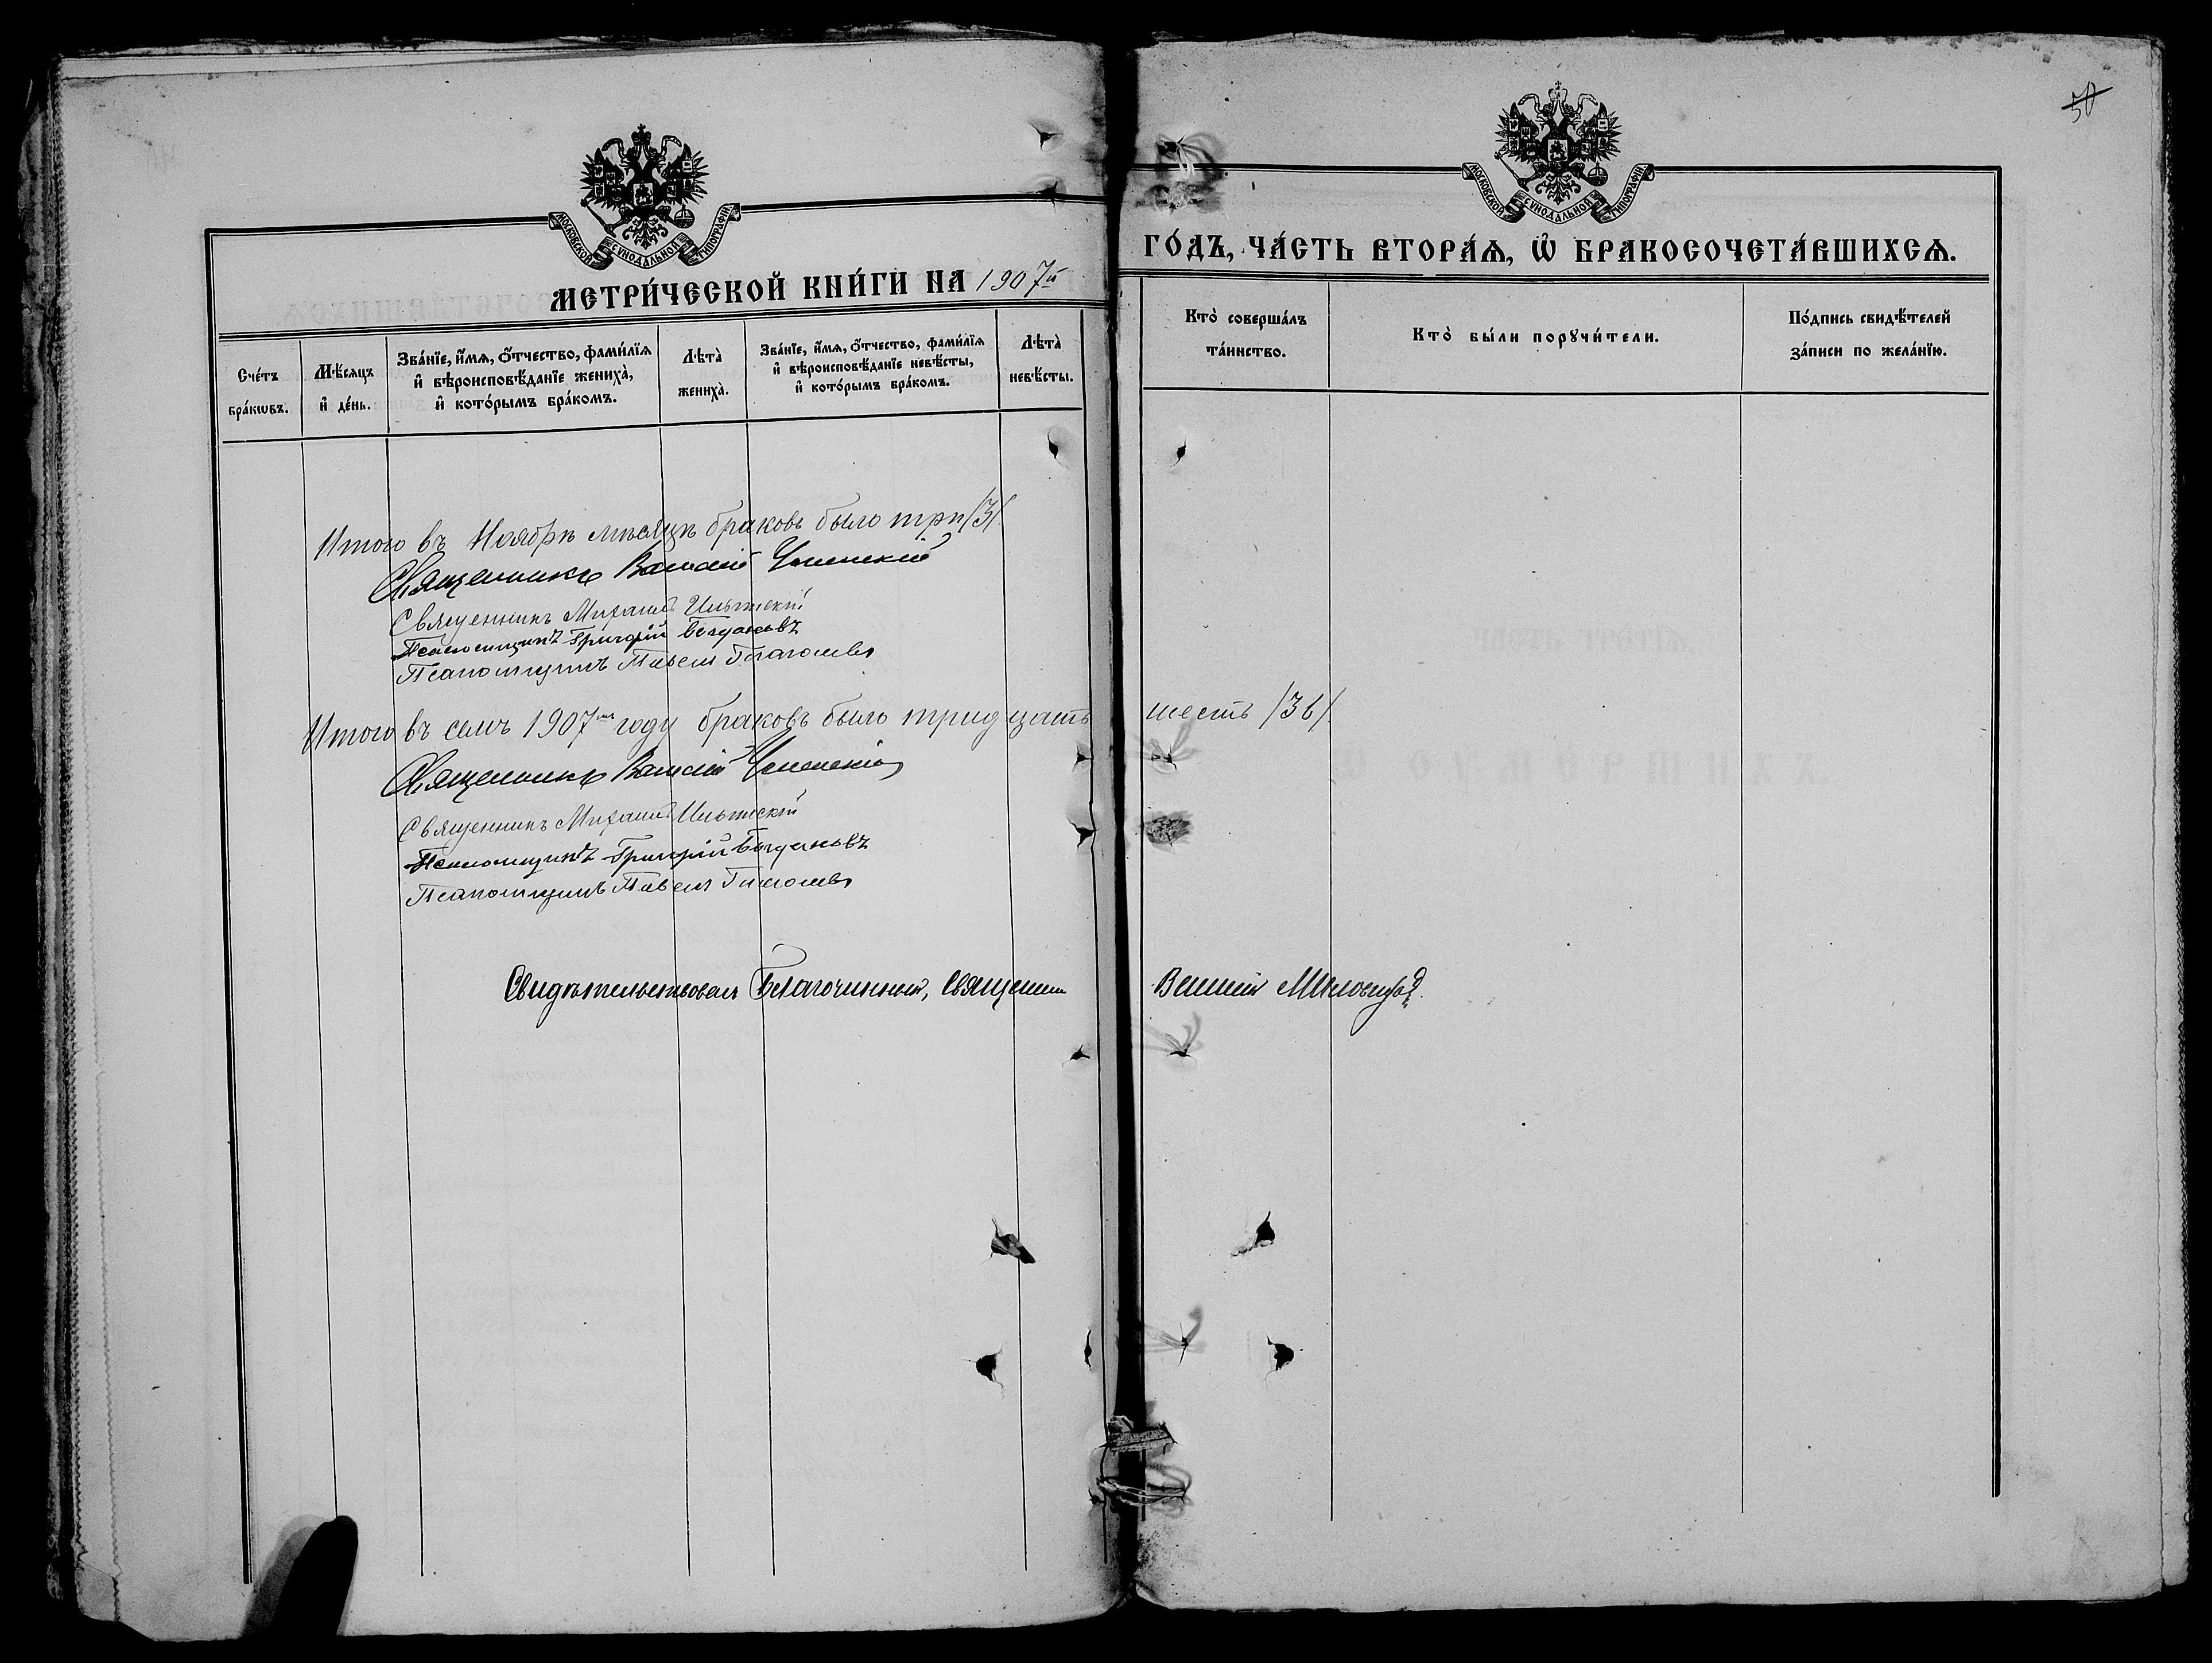 50
МОСКОВСКОЙ СѴНОДАЛЬНОЙ ТИПОГРАФІИ.
МОСКОВСКОЙ СѴНОДАЛЬНОЙ ТИПОГРАФІИ.
МЕТРИ́ЧЕСКОЙ КНИ́ГИ НА 1907й ГО́ДЪ, ЧА́СТЬ ВТОРА́Ѧ, Ѡ҆ БРАКОСОЧЕТА́ВШИХСѦ.
Сче́тъ бра́кѡвъ.
Мѣ́сяцъ и҆ де́нь.
Зва́нїе, и҆́мѧ, ѻ҆́тчество, фами́лїѧ и҆ вѣроисповѣ́данїе жениха̀, и҆ кото́рымъ бра́комъ.
Лѣта̀ жениха̀.
Зва́нїе, и҆́мѧ, ѻ҆́тчество, фами́лїѧ и҆ вѣроисповѣ́данїе невѣ́сты, и҆ кото́рымъ бра́комъ.
Лѣта̀ невѣ́сты.
Кто̀ соверша́лъ та́инство.
Кто̀ бы́ли порꙋчи́тели.
По́дпись свидѣ́телей за́писи по жела́нїю.
Итого въ Ноябрѣ мѣсяцѣ браковъ было три /3/.
Священникъ Василій
Священникъ Михаилъ
Псаломщикъ Григорій Богдановъ
Псаломщикъ Павелъ Глаголевъ
Итого въ семъ 1907мъ году браковъ было тридцать шесть /36/.
Священникъ Василій
Священникъ Михаилъ
Псаломщикъ Григорій Богдановъ
Псаломщикъ Павелъ Глаголевъ
Свидѣтельствовалъ Благочинный, Священникъ